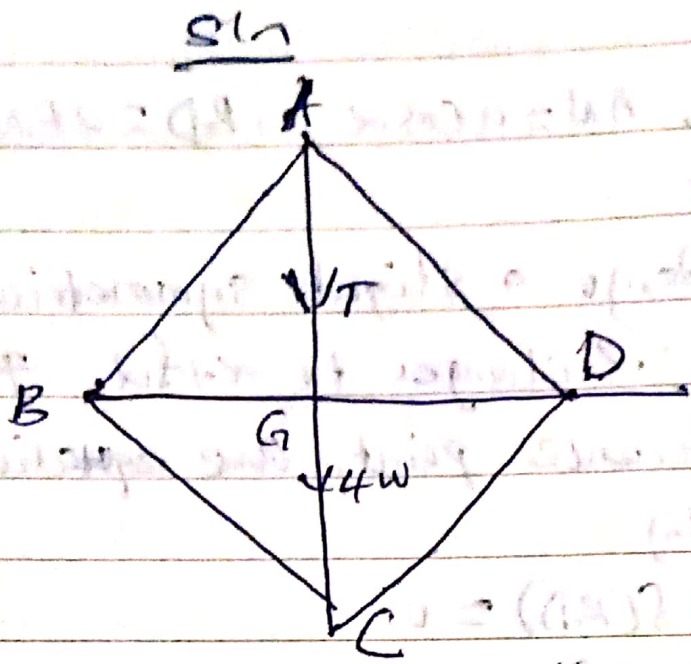 Sln
A
T
D
B
G
4W
C